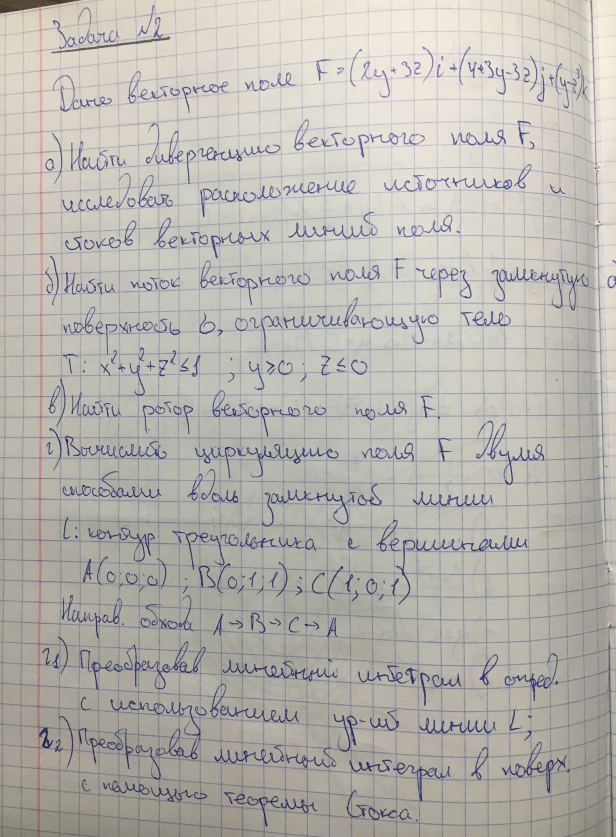 Задача №2
Дано векторное поле F=(2y+3z)i+(4+3y-3z)j+(y-z³)k
а) Найти дивергенцию векторного поля F,
исследовать расположение источников и
стоков векторных линий поля.
б) Найти поток векторного поля F через замкнутую
поверхность б, ограничивающую тело
T: x²+y²+z²≤1 ; y≥0 ; z≤0
в) Найти ротор векторного поля F.
г) Вычислить циркуляцию поля F двумя
способами вдоль замкнутой линии
L: контур треугольника с вершинами
A(0;0;0) ; B(0;1;1) ; C(1;0;1)
Направ. обхода A→B→C→A
г1) Преобразовав линейный интеграл в опред.
с использованием ур-ий линии L;
г2) Преобразовав линейный интеграл в поверх.
с помощью теоремы Стокса.